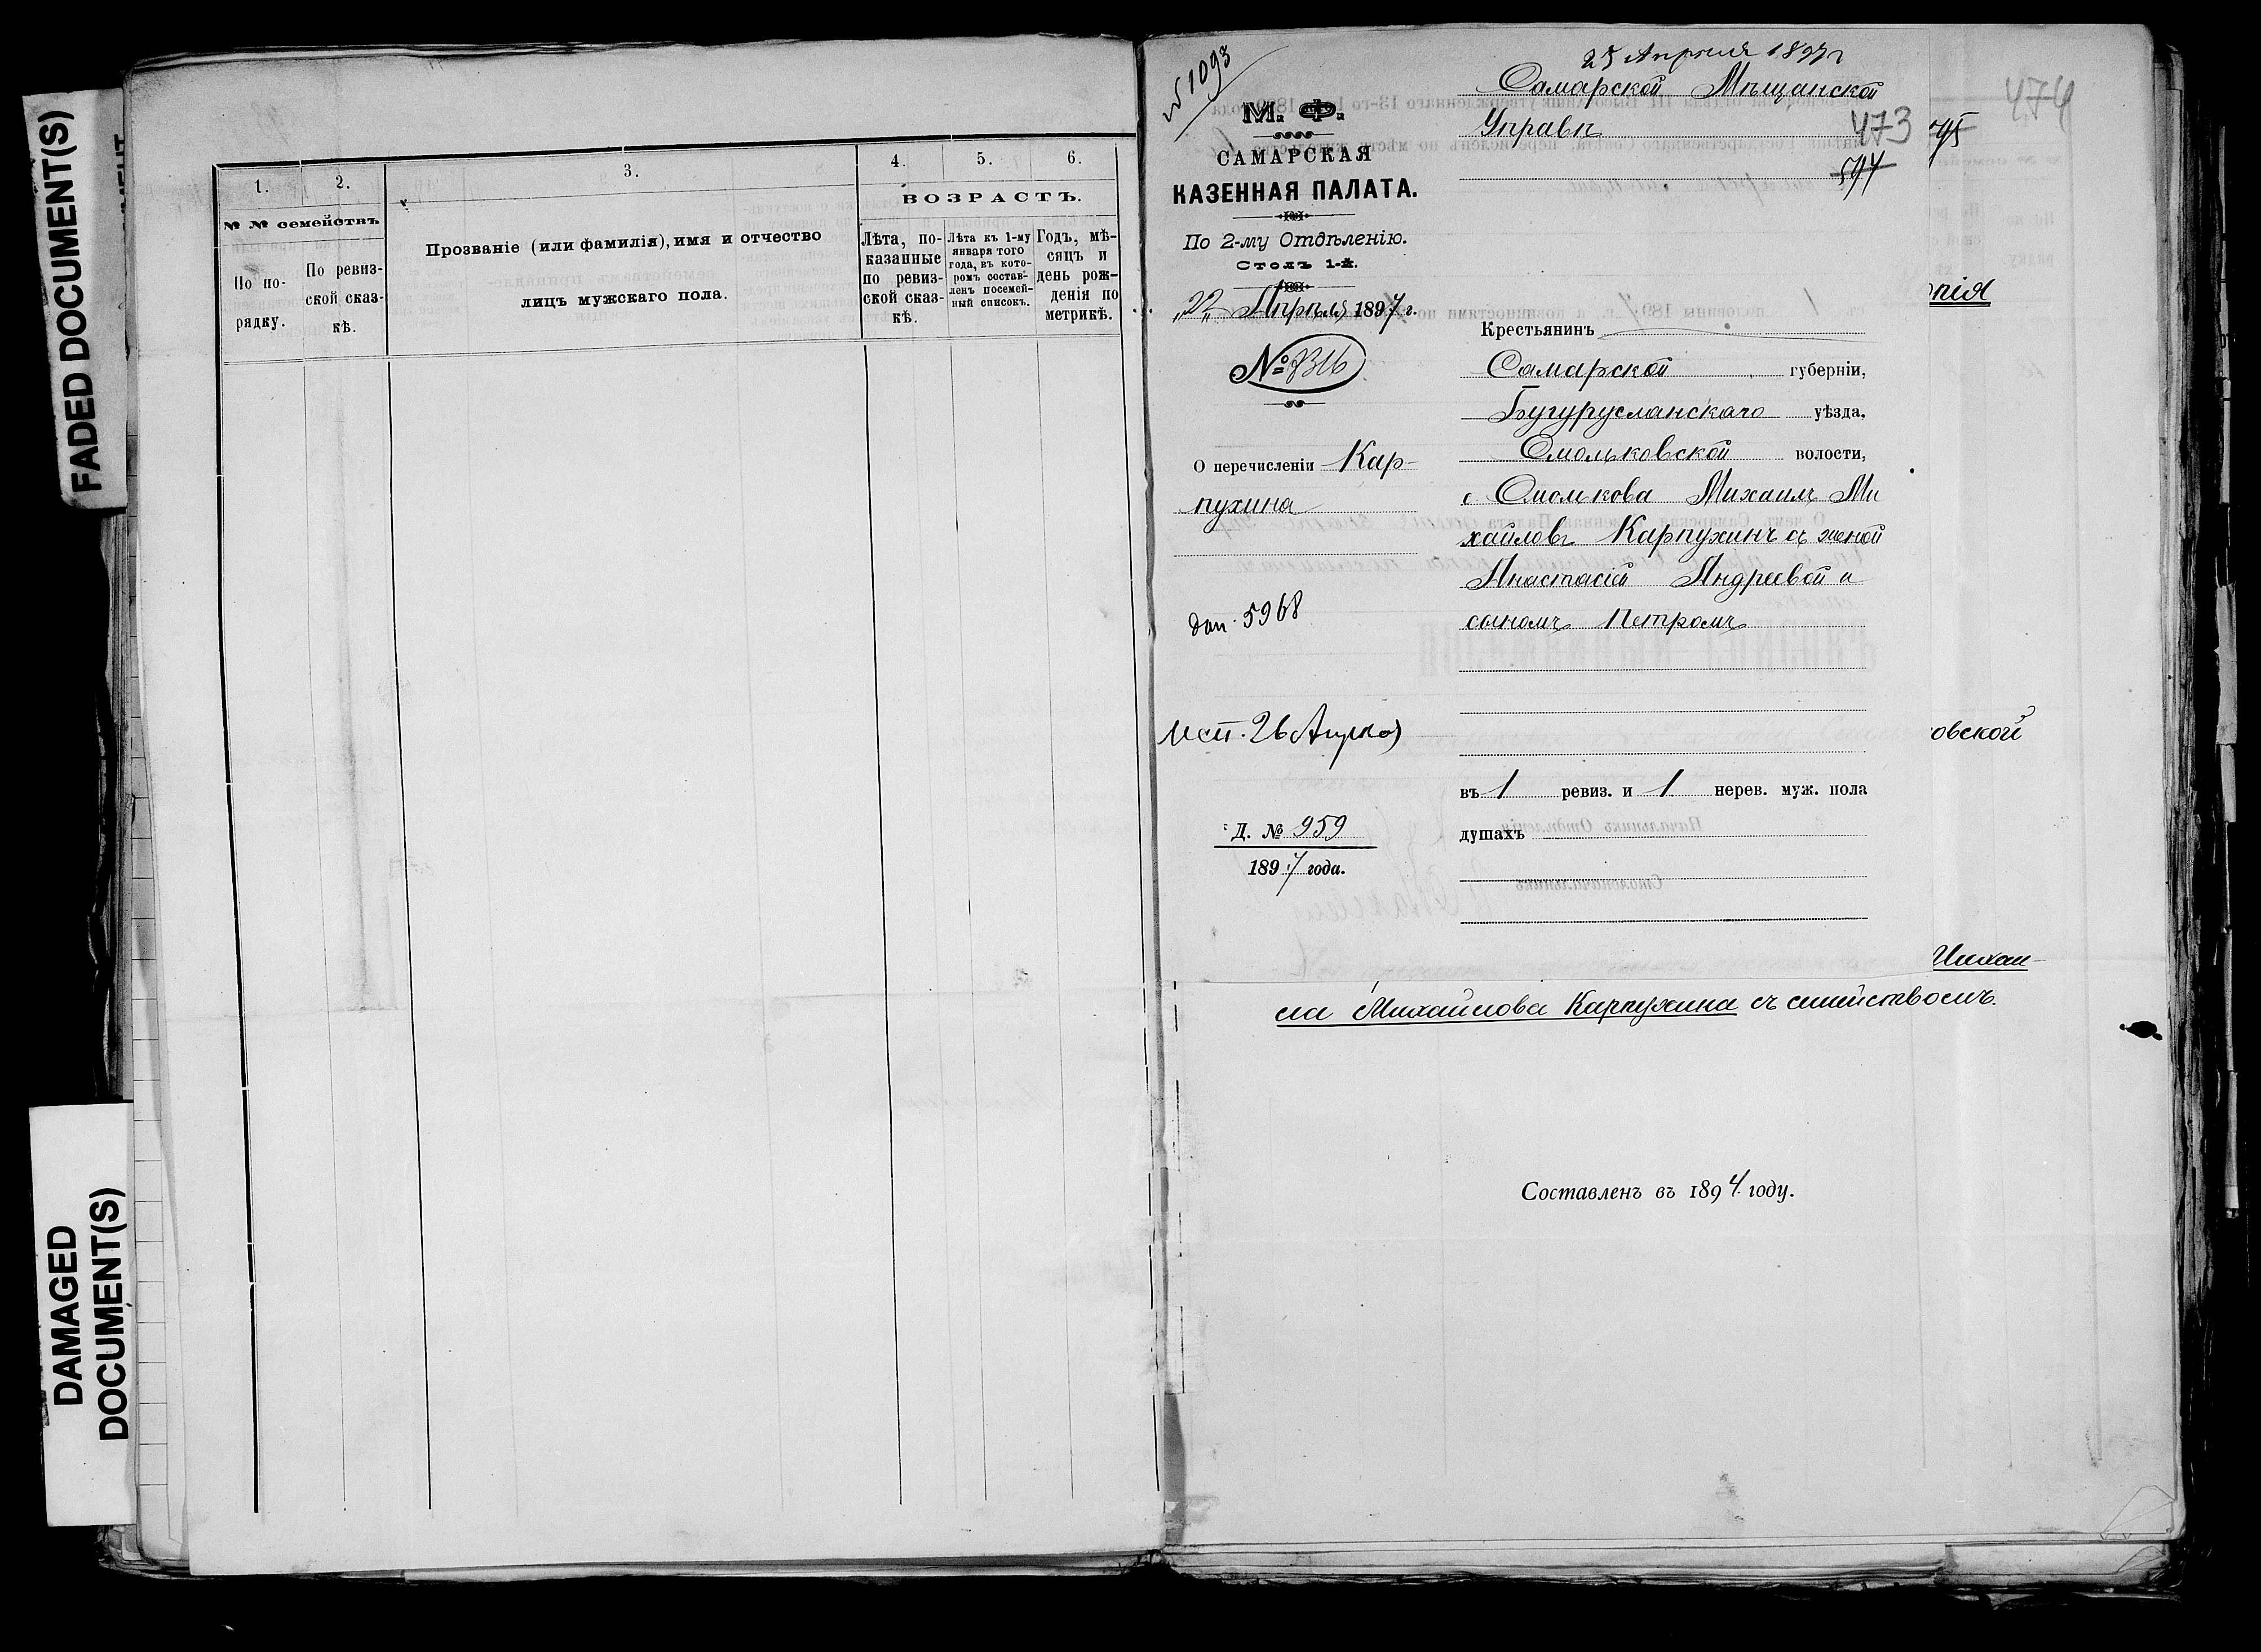 FADED DOCUMENT(S)
DAMAGED
DOCUMENT(S)
1.
2.
3.
4.
5.
6.
№ № семействъ
ВОЗРАСТЪ.
По по-
рядку.
По ревиз-
ской сказ-
кѣ.
Прозваніе (или фамилія), имя и отчество
лицъ мужскаго пола.
Лѣта, по-
казанные
по ревиз-
ской сказ-
кѣ.
Лѣта къ 1-му
января того
года, въ кото-
ромъ состав-
ленъ посемей-
ный списокъ.
Годъ, мѣ-
сяцъ и
день рож-
денія по
метрикѣ.
№ 1093
М. Ф.
САМАРСКАЯ
КАЗЕННАЯ ПАЛАТА.
По 2-му Отдѣленію.
Столъ 1-й.
„22„ Апрѣля 1897 г.
№ 8316
О перечисленіи Кар-
пухина
5968
26 Апрѣля
Д. № 959
1897 года.
25 Апрѣля 1897 г
Самарской Мѣщанской
Управѣ
473
574
474
Крестьянинъ
Самарской губерніи,
Бугурусланскаго уѣзда,
Смольковской волости,
с Смолькова Михаилъ Ми
хайловъ Карпухинъ съ женой
Анастасіей Андреевой и
сыномъ Петромъ
въ 1 ревиз. и 1 нерев. муж. пола
душахъ
пія
овской
Михаи-
ла Михайлова Карпухина съ семействомъ.
Составленъ въ 1894 году.